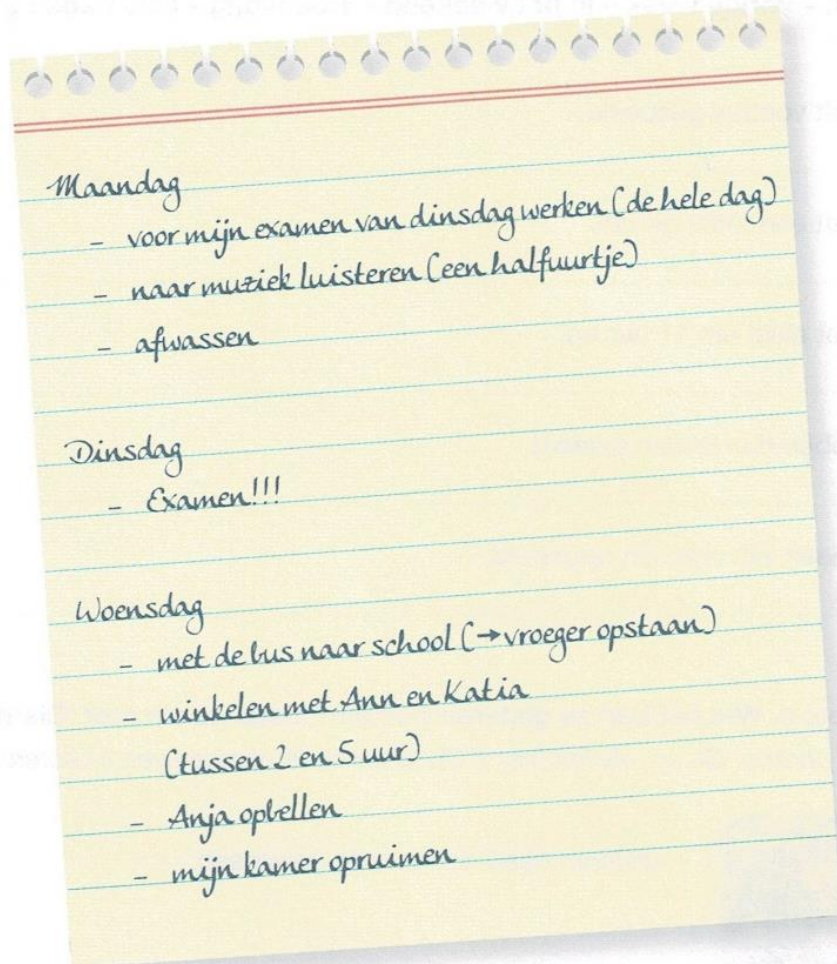 Maandag
- voor mijn examen van dinsdag werken (de hele dag)
- naar muziek luisteren (een halfuurtje)
- afwassen
Dinsdag
- Examen!!!
Woensdag
- met de bus naar school (→vroeger opstaan)
- winkelen met Ann en Katia
(tussen 2 en 5 uur)
- Anja opbellen
- mijn kamer opruimen